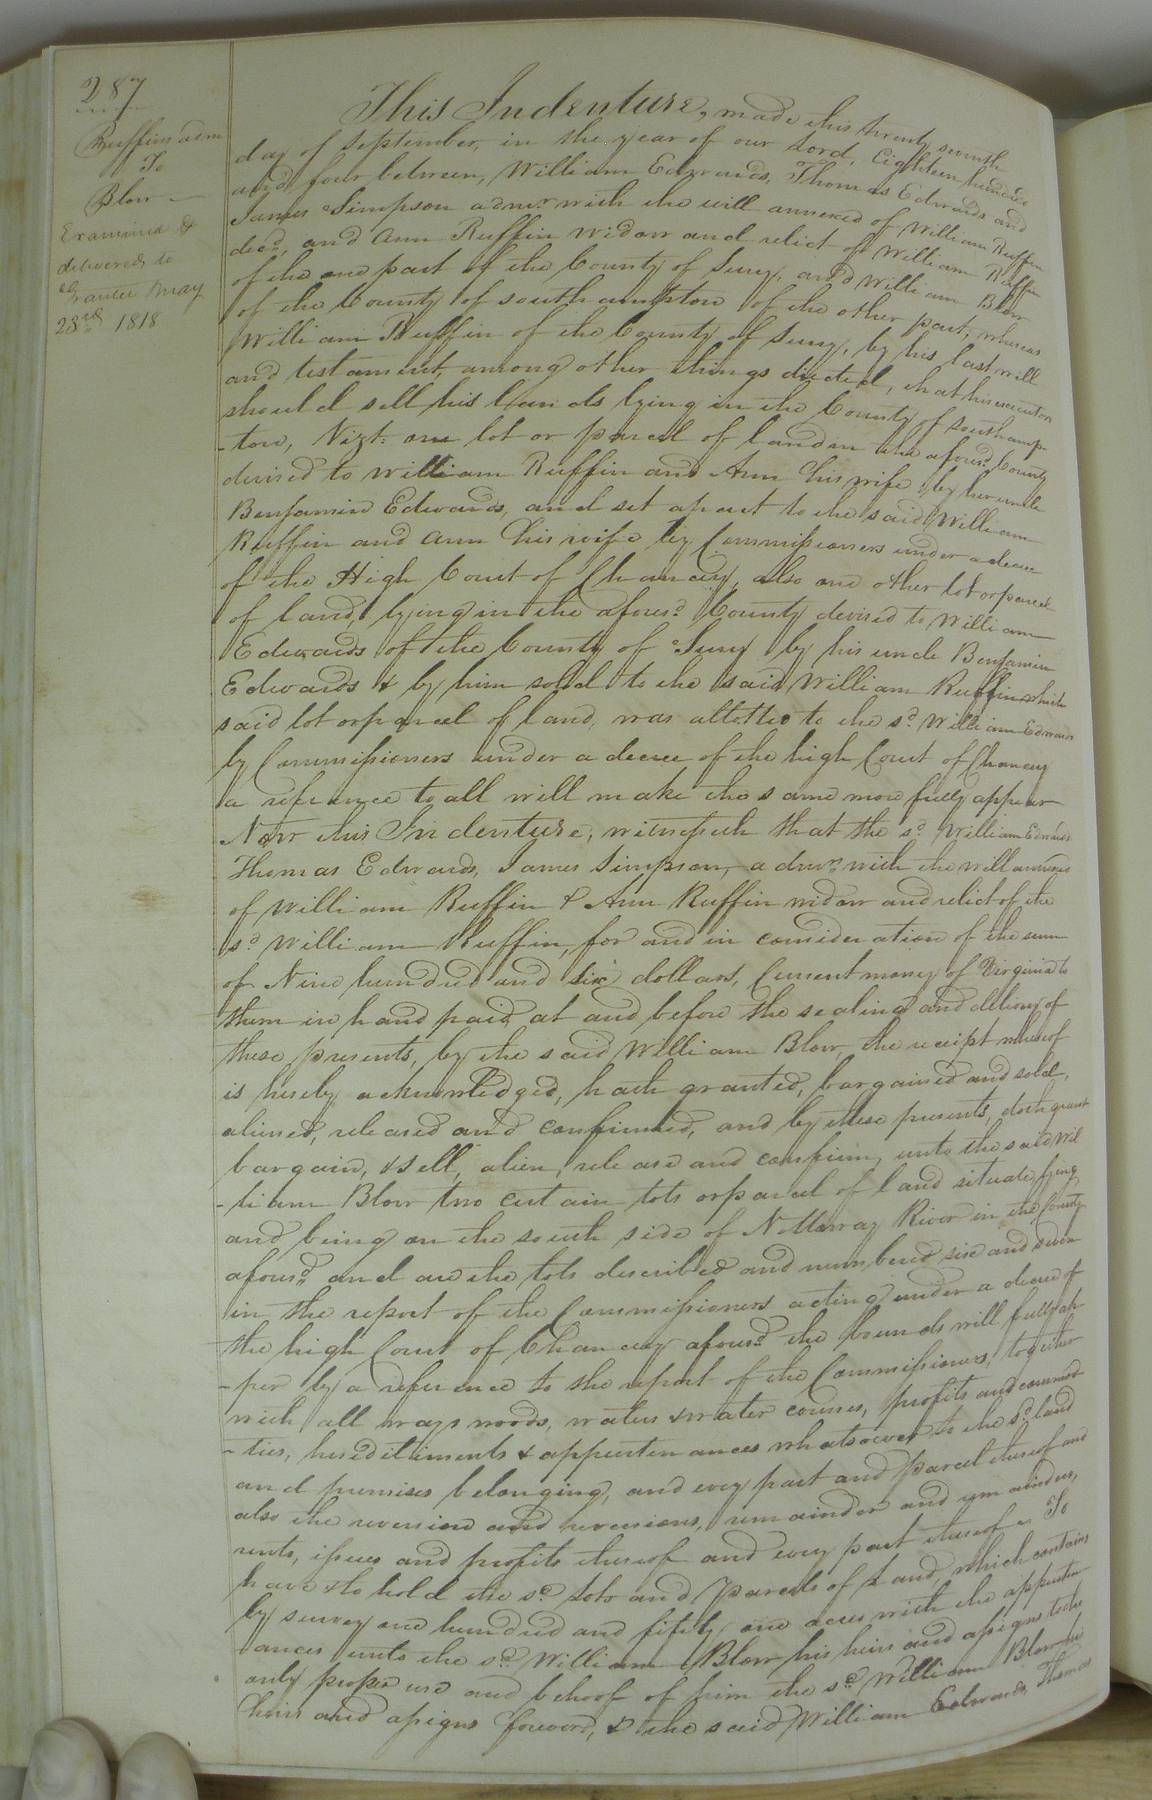 287
Ruffins adm
To
Blow
Examined &
delivered to
Grantee May
23rd 1818
This Indenture, made this twenty seventh
day of September, in the year of our Lord, Eighteen hundred
and four between, William Edwards, Thomas Edwards and
James Simpson admr. with the will annexed of William Ruffin
decd., and Ann Ruffin widow and relict of William Ruffin
of the one part of the County of Surry, and William Blow
of the County of southampton of the other part, whereas
William Ruffin of the County of Surry, by his last will
and testament, among other things directed, that his executors
should sell his lands lying in the County of southamp-
-ton, Vizt. one lot or parcel of land in the aforsd. County
devised to William Ruffin and Ann his wife by her uncle
Benjamin Edwards, and set apart to the said William
Ruffin and Ann his wife by Commissioners under a decree
of the High Court of Chancery, also one other lot or parcel
of land, lying in the aforsd. County devised to William
Edwards of the County of Surry by his uncle Benjamin
Edwards & by him sold to the said William Ruffin which
said lot or parcel of land, was allotted to the sd. William Edwards
by Commissioners under a decree of the high Court of Chancery
a reference to all will make the same more fully appear
Now this Indenture, witnesseth that the sd. William Edwards
Thomas Edwards, James Simpson, admr. with the will annexed
of William Ruffin & Ann Ruffin widow and relict of the
sd. William Ruffin, for and in consideration of the sum
of Nine hundred and six dollars, Current money of Virginia to
them in hand paid, at and before the sealing and delivery of
these presents, by the said William Blow, the receipt whereof
is hereby acknowledged, hath granted, bargained and sold,
aliened, released and confirmed, and by these presents, doth grant
bargain, & sell, alien, release and confirm, unto the said Wil
-liam Blow two certain lots or parcel of land situate lying
and being on the south side of Nottoway River in the County
aforsd. and are the lots described and numbered six and seven
in the report of the Commissioners acting under a decree of
the high Court of Chancery aforsd. the bounds will fully ap-
-per by a reference to the report of the Commissioners, together
with all ways woods, waters & water courses, profits and commodi-
-ties, heriditiments & appurtenances whatsoever to the sd. land
and premises belonging, and every part and parcel thereof and
also the reversion and reversions, remainder and remainders,
rents, issues and profits thereof and every part thereof To
have & to hold the sd. lots and parcels of Land, which contains
by survey one hundred and fifty one acres with the appurten
ances unto the sd. William Blow his heirs and assigns to the
only proper use and behoof of him the sd. William Blow his
heirs and assigns forever, & the said William Edwards, Thomas